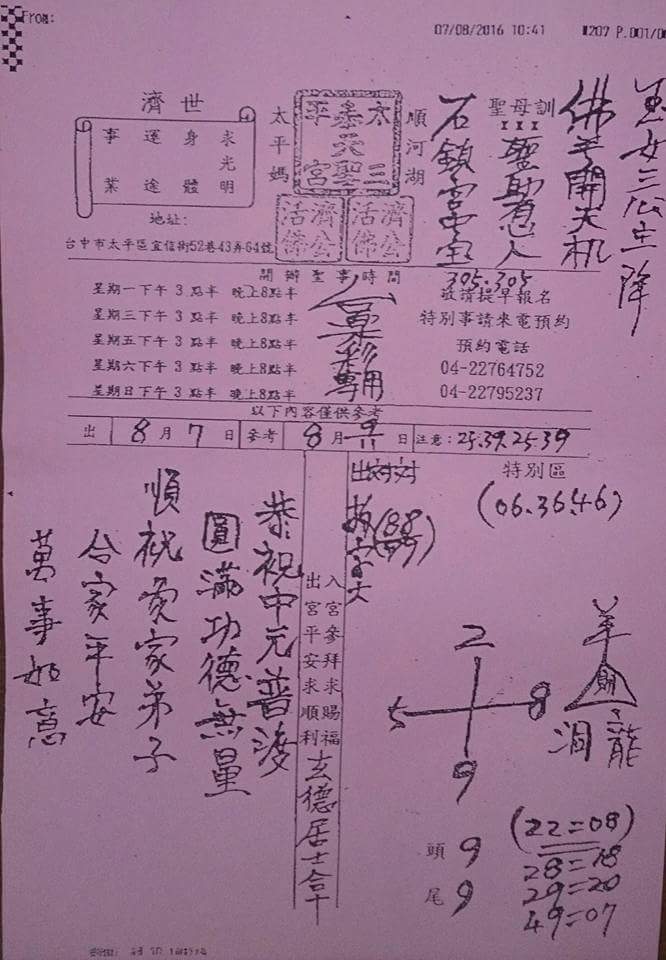 From:
07/08/2016 10:41
M207 P.001/0
玉女三公主降
佛手開天机
聖母訓
III
聖助有人
石鎮宮中堂
305.305
順河湖
太三
泰天聖
平宮
濟公活佛
濟公活佛
太平媽
濟世
求光明
身體
運途
事業
地址:
台中市太平區宜信街52巷43弄64號
開辦聖事時間
星期一下午3點半 晚上8點半
星期三下午3點半 晚上8點半
星期五下午3點半 晚上8點半
星期六下午3點半 晚上8點半
星期日下午3點半 晚上8點半
合彩專用
敬請提早報名
特別事請來電預約
預約電話
04-22764752
04-22795237
以下內容僅供參考
出 8月7日 參考 8月 日 注意:25.39.25-39
特別區
(06.36.46)
(88
入宮參拜求賜福
出宮平安求順利
玄德居士合十
恭祝中元普渡
圓滿功德無量
順祝爰家弟子
合家平安
萬事如意
2
5 8
9
羊
財
龍
頭 9
尾 9
(22=08)
28=18
29=20
49=07